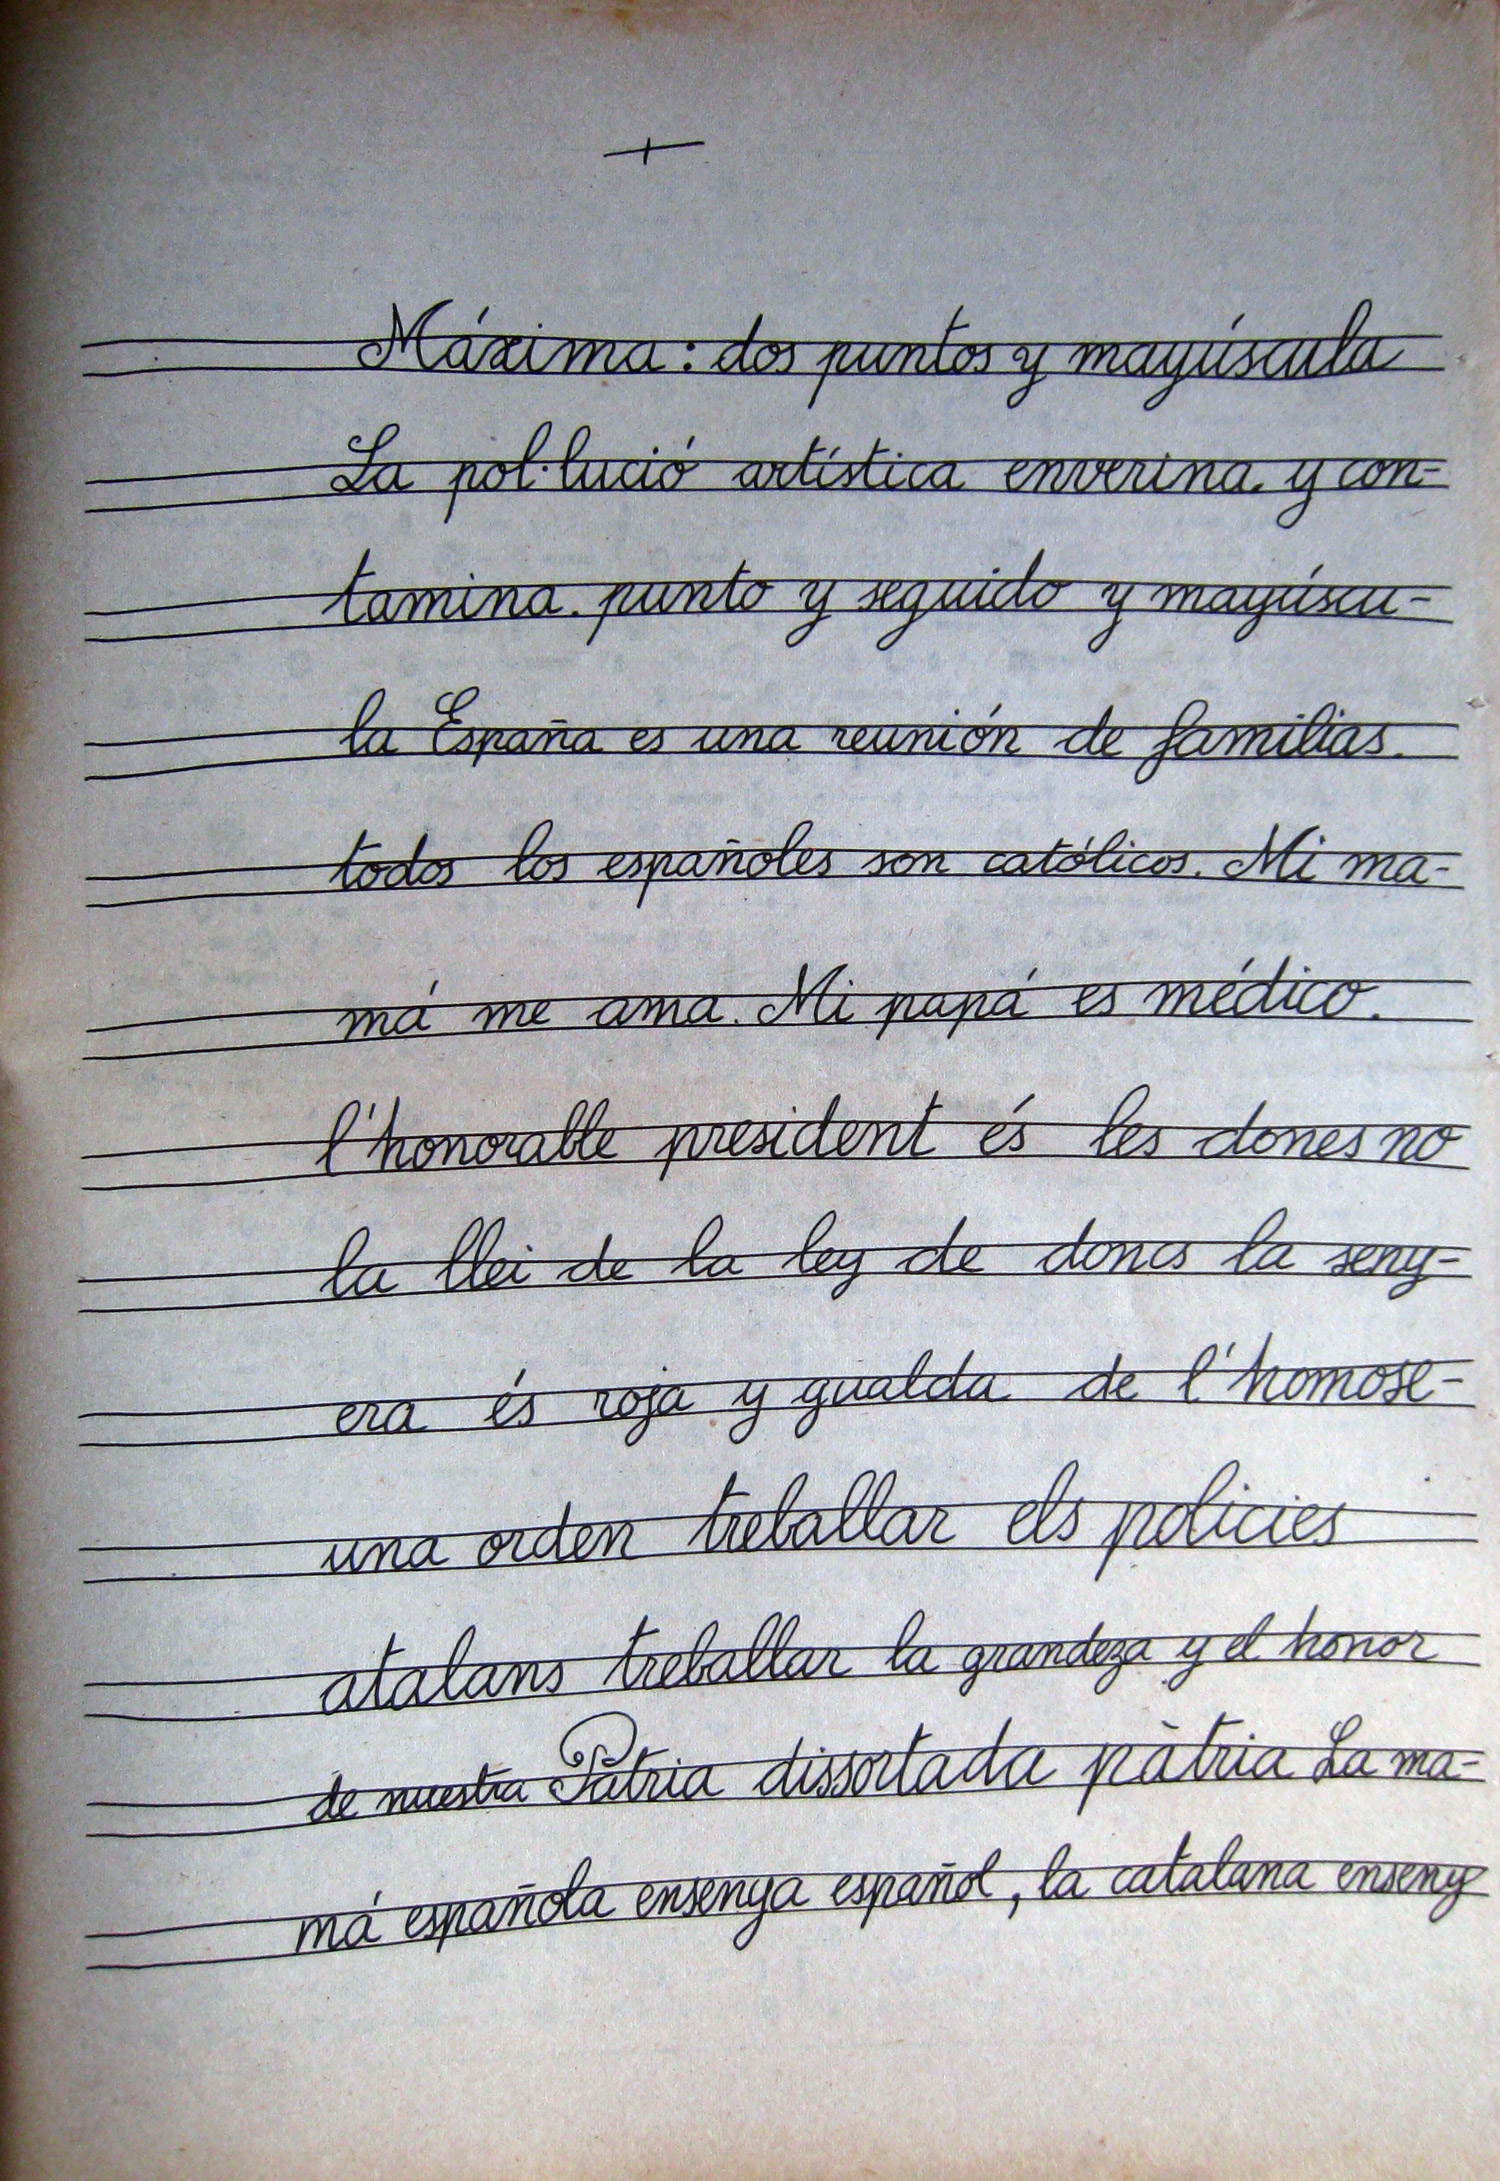 Máxima: dos puntos y mayúscula
La pol·lució artística enverina. y con-
tamina. punto y seguido y mayúscu-
la España es una reunión de familias.
todos los españoles son católicos. Mi ma-
má me ama. Mi papá es médico.
l'honorable president és les dones no
la llei de la ley de doncs la seny-
era és roja y gualda de l'homose-
una orden treballar els policies
atalans treballar la grandeza y el honor
de nuestra Patria dissortada pàtria La ma-
má española ensenya español, la catalana enseny